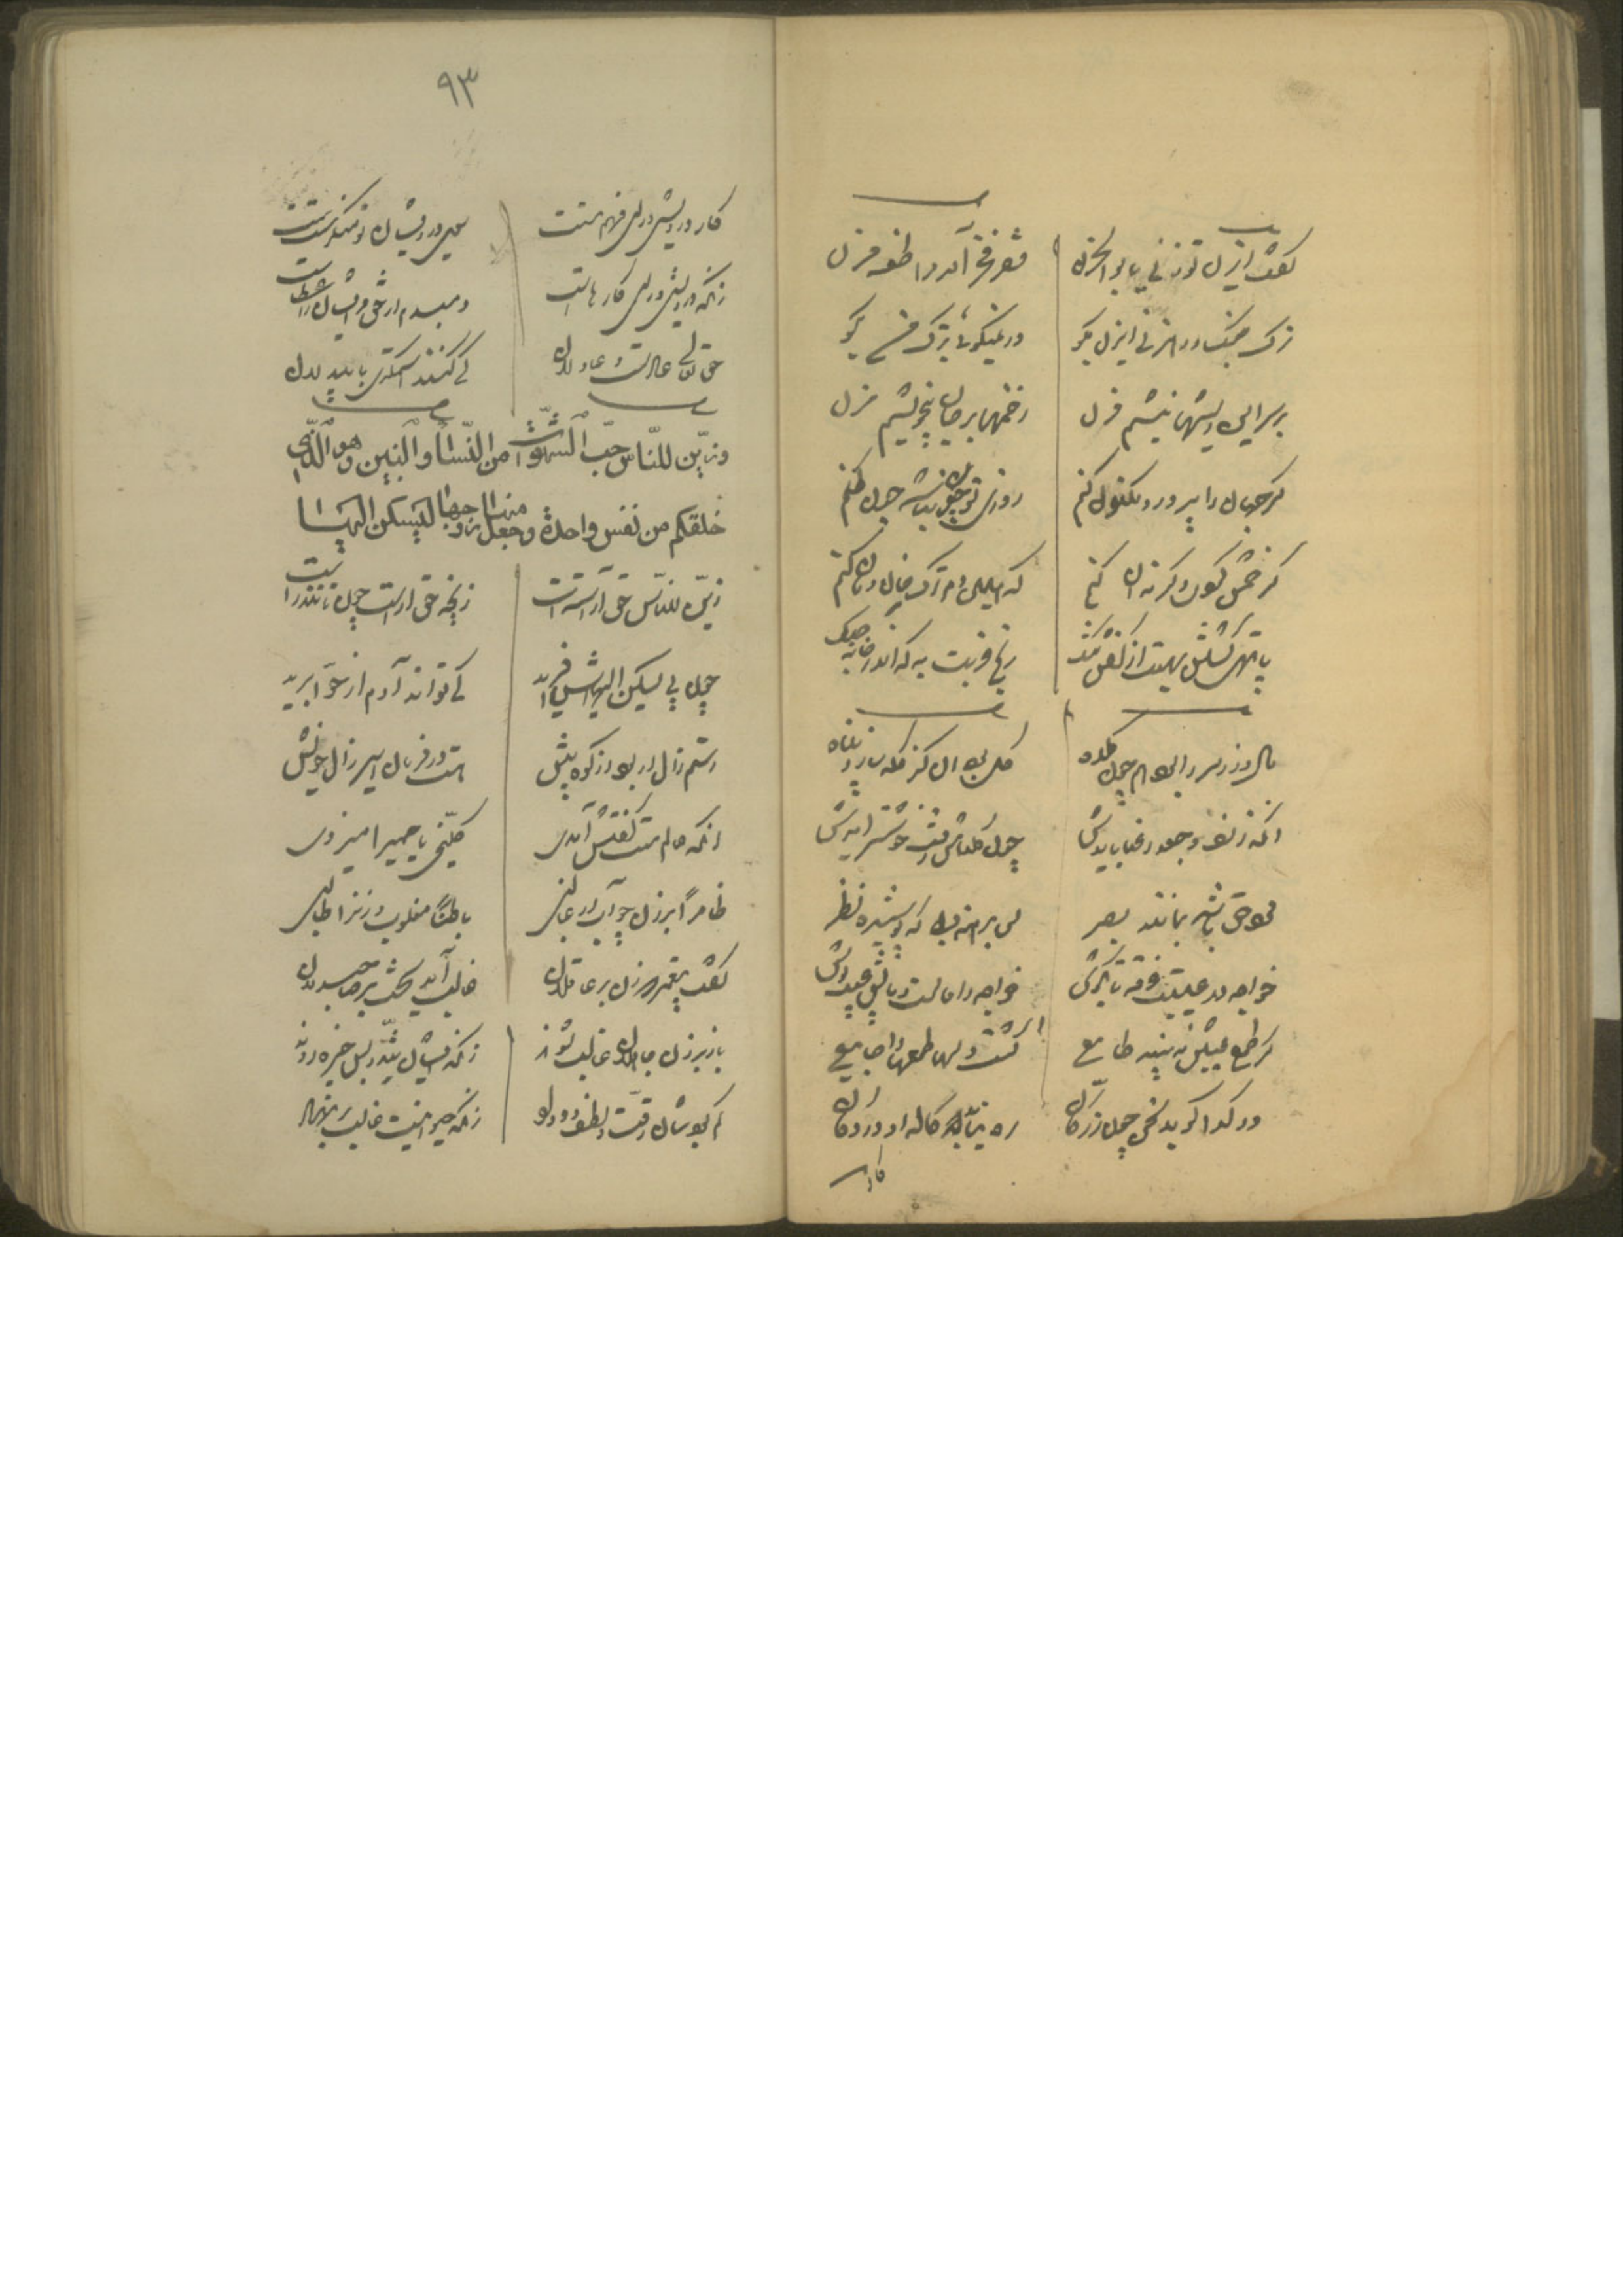 گفت ای زن تو زنی یا بوالحزن
فقر فخر آمد مرا طعنه مزن
ترک جنگ و رهزنی ای زن بگو
ور نمیگوئی بترک من بگو
بر سر این ریشها نیشم مزن
زخمها بر جان بیخویشم مزن
گر جهان را پر در مکنون کنم
روزی تو چون نباشد چون کنم
گر خمش کردی وگرنه آن کنم
که همین دم ترک خان و مان کنم
پا تهی گشتن بهست از کفش تنگ
رنج غربت به که اندر خانه جنگ
مال و زر سر را بود همچون کلاه
کل بود آن کز کله سازد پناه
آنکه زلف و جعد رعنا باشدش
چون کلاهش رفت خوشتر آیدش
مرد حق باشد بمانند بصر
پس برهنه به که پوشیده نظر
خواجه در عیبست غرقه تا بگوش
خواجه را مالست و مالش عیب پوش
کز طمع عیبش نبیند طامعی
گشت دلها را طمعها جامعی
ور گدا گوید سخن چون زر کان
ره نیابد کاله او در دکان
کار
۹۳
کار درویشی ورای فهم تست
سوی درویشان تو منگر سست سست
زانکه درویشی ورای کارهاست
دمبدم از حق مر ایشان را عطاست
حق تعالی عادلست و عادلان
کی کنند استمگری بر بیدلان
وزین للناس حب الشهوات من النساء والبنین وهو الذی
خلقکم من نفس واحدة وجعل منها زوجها لیسکن الیها
زین للناس حق آراستست
زانچه حق آراست چون تانند رست
چون پی یسکن الیهاش آفرید
کی تواند آدم از حوا برید
رستم زال ار بود وز حمزه بیش
هست در فرمان اسیر زال خویش
آنکه عالم مست گفتش آمدی
کلمینی یا حمیرا میزدی
ظاهرا بر زن چو آب ار غالبی
باطنا مغلوب و زن را طالبی
گفت پیغمبر که زن بر عاقلان
غالب آید سخت بر صاحبدلان
باز بر زن جاهلان غالب شوند
زانکه ایشان تند و بس خیره روند
کم بودشان رقت و لطف و وداد
زانکه حیوانیست غالب بر نهاد